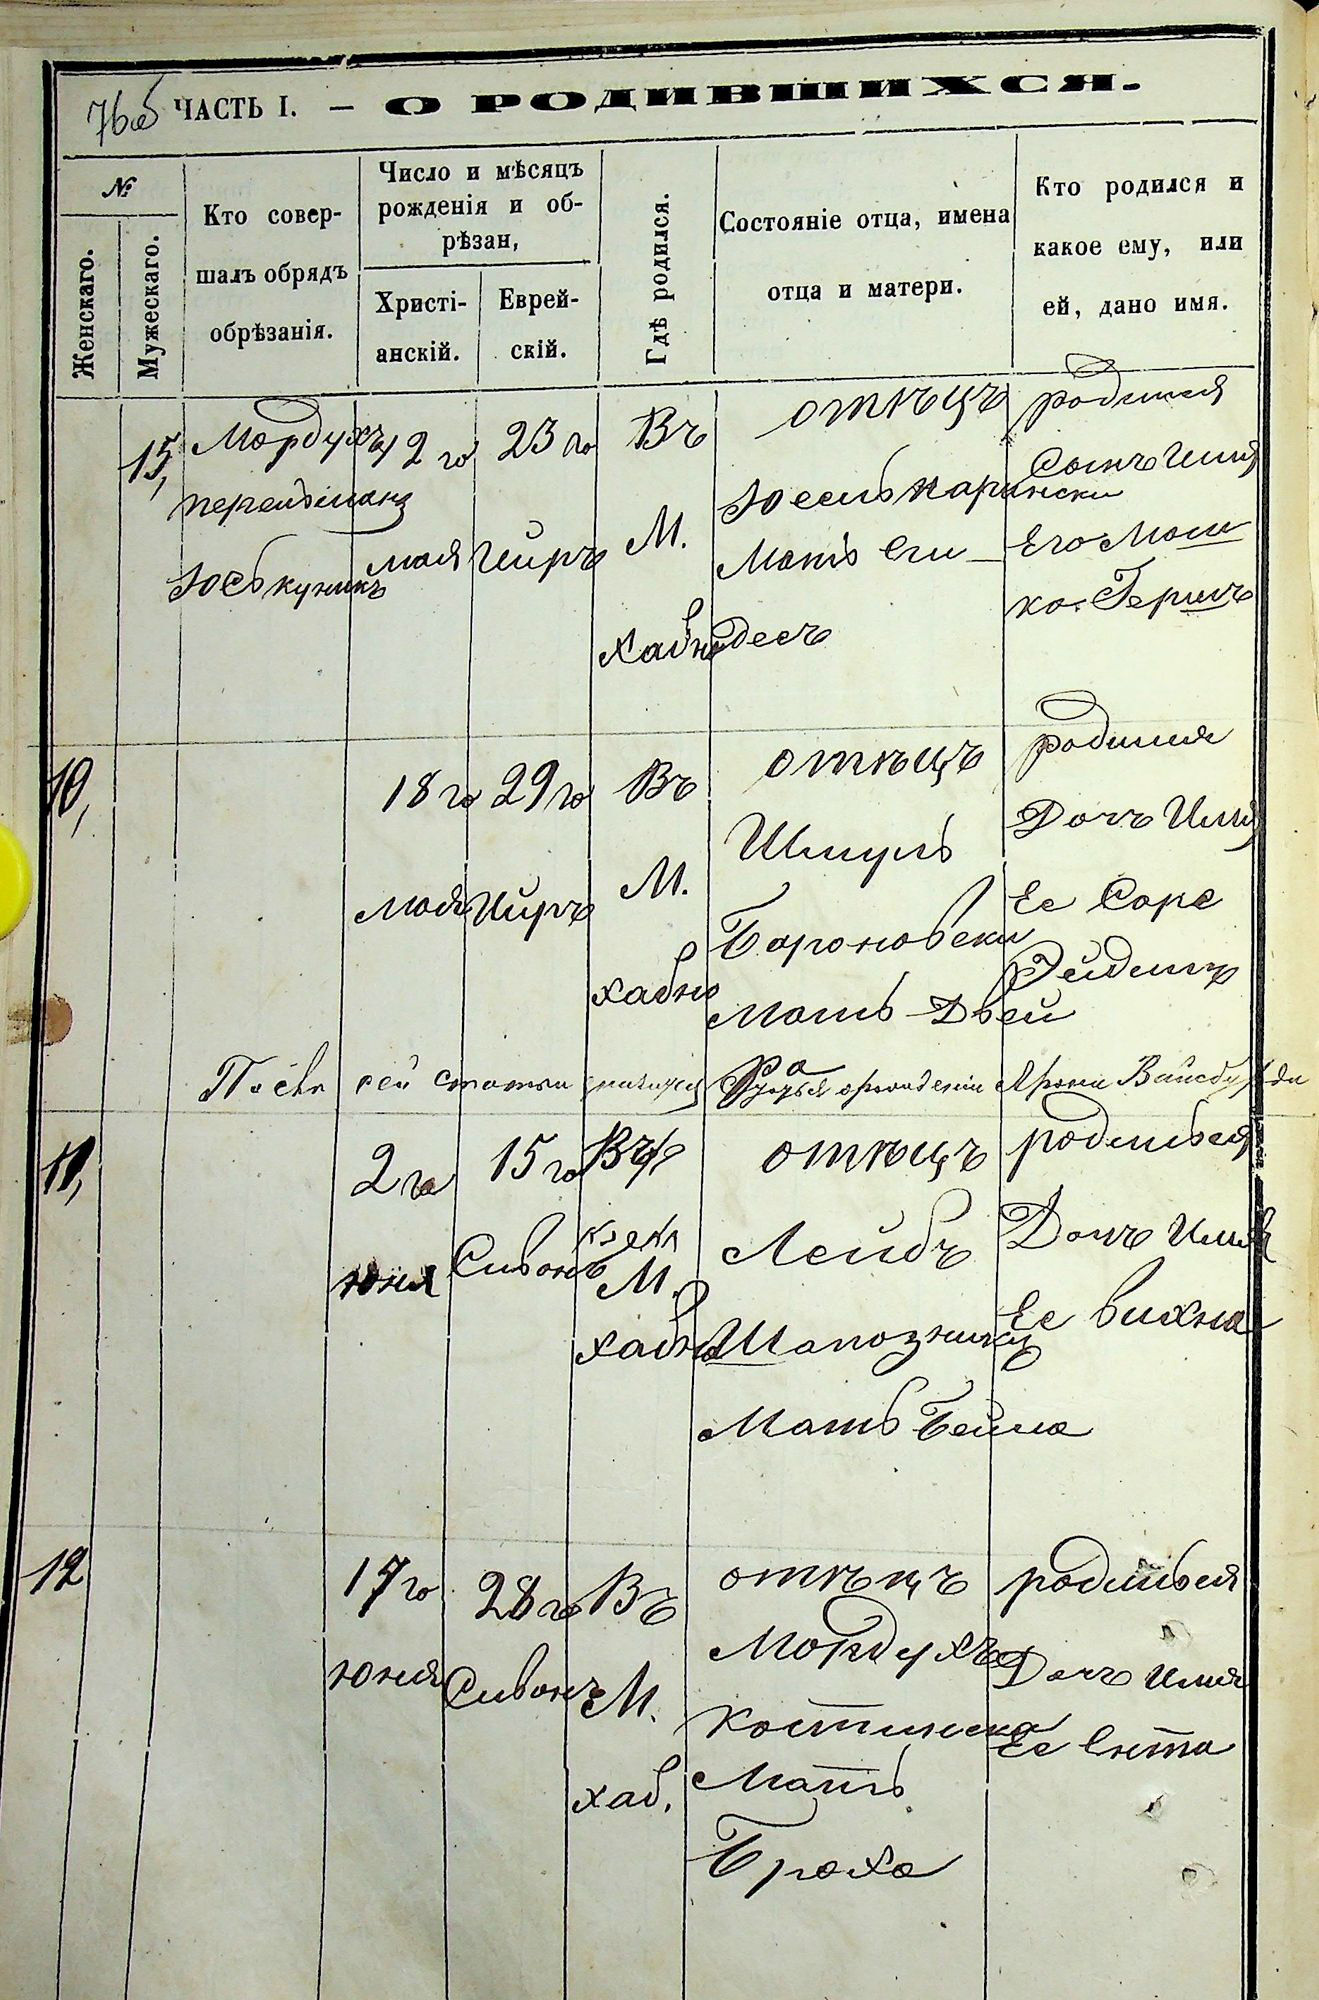 76об ЧАСТЬ I. – О РОДИВШИХСЯ.
№
Женскаго.
Мужескаго.
Кто совер-
шалъ обрядъ
обрѣзанія.
Число и мѣсяцъ
рожденія и об-
рѣзан,
Христі-
анскій.
Еврей-
скій.
Гдѣ родился.
Состояніе отца, имена
отца и матери.
Кто родился и
какое ему, или
ей, дано имя.
15,
Мордухъ
Юсь куникъ
12 го
мая
23 го
Ииръ
Въ
М.
Хабно
отѣцъ
Юсель
Мать
десъ
родился
Сынъ Имя
Его Мош
ко. Гершъ
10,
18 го
мая
29 го
Ииръ
Въ
М.
хабно
отѣцъ
Шмуль
Бароновски
Мать Двей
родился
Дочъ Имя
Ее Соре
сей статьи
11,
2 го
юня
15 го
Сивонъ
Въ
М.
хабно
отѣцъ
Лейбъ
Шапозникъ
Мать Бейла
родилься
Дочъ Имя
Ее вихна
12
17 го
юня
28 го
Сивонъ
Въ
М.
хаб.
отѣцъ
Мордухъ
Мать
Броха
родилься
Дочъ имя
Ее Ента